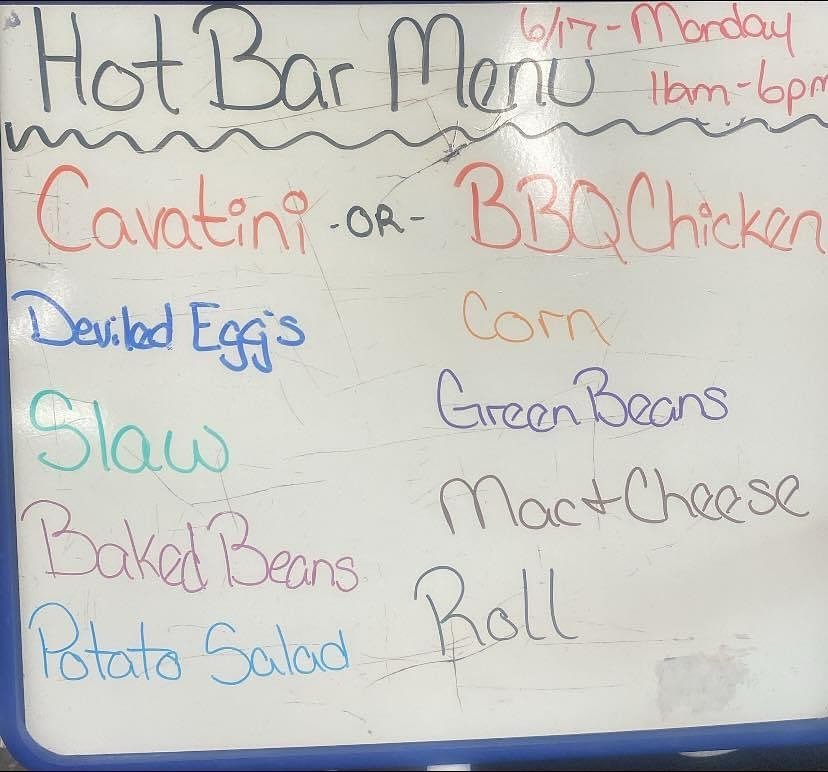 Hot Bar Menu
6/17-Monday
11am-6pm
Cavatini -OR- BBQ Chicken
Deviled Egg's
Corn
Slaw
Green Beans
Baked Beans
Mac + Cheese
Potato Salad
Roll